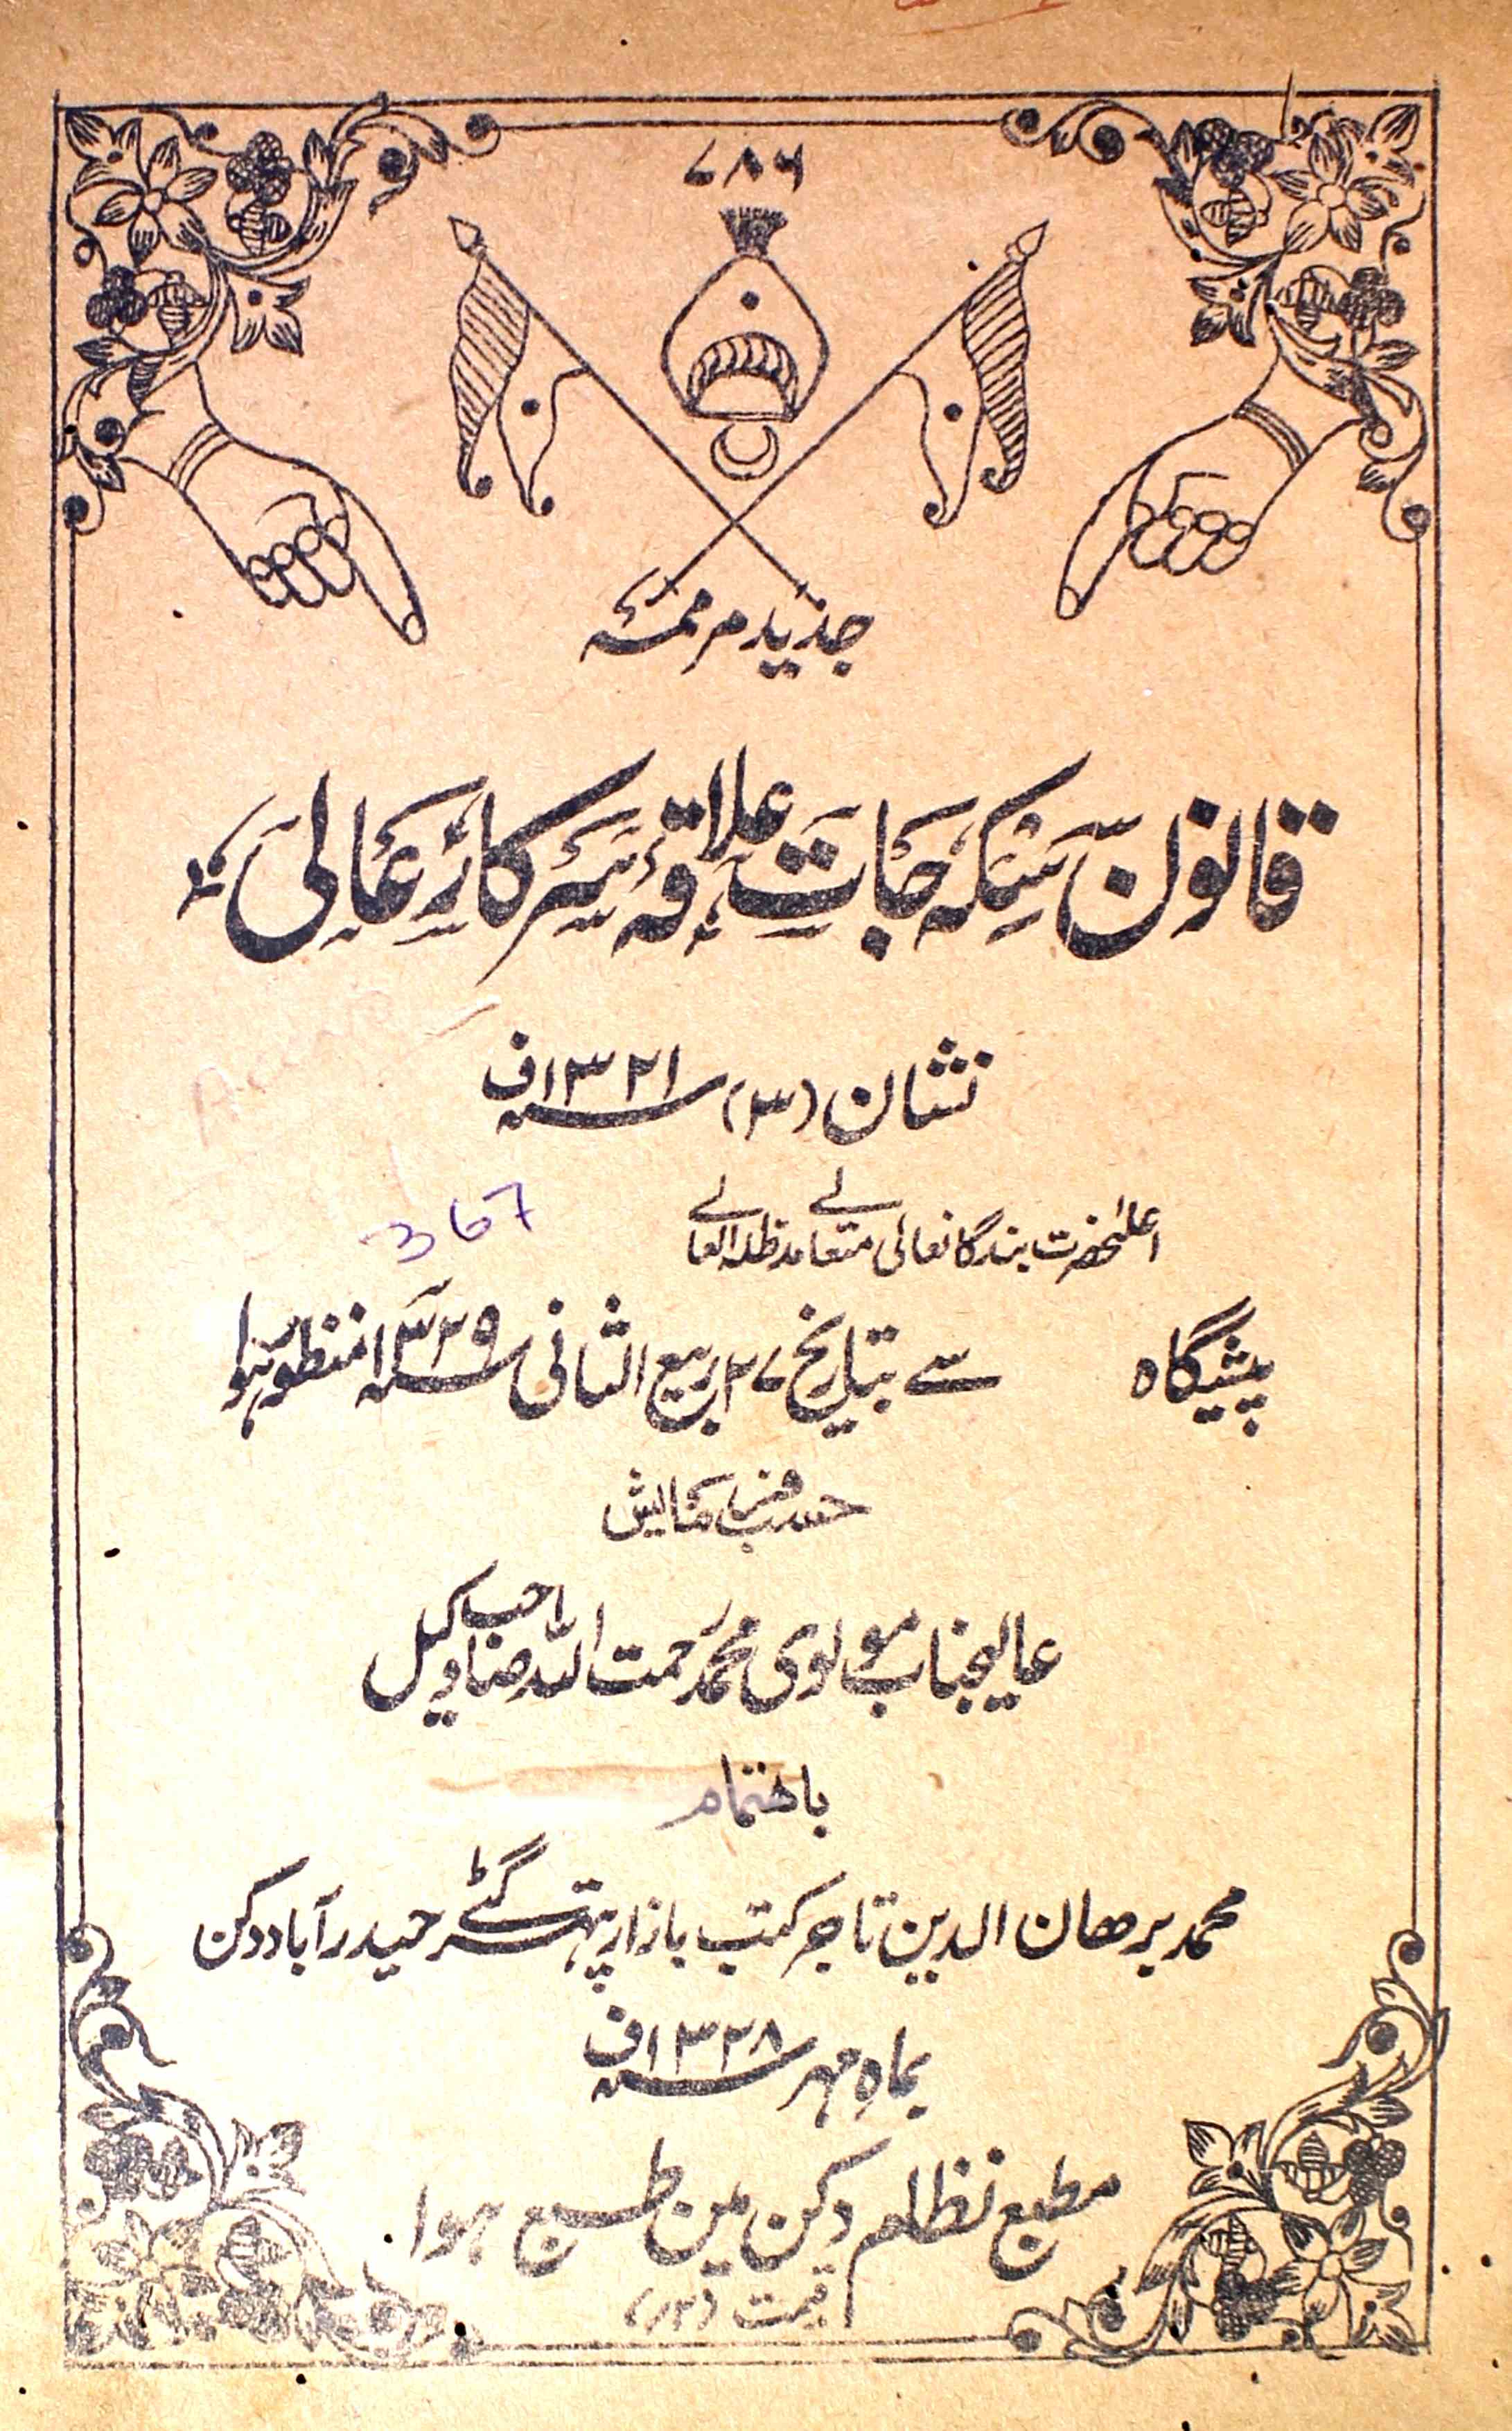 ۷۸۶
جدید مرممہ
قانون سکہ جات علاقہ سرکار عالی
نشان (۳) ۱۳۲۱ ف
اعلیٰحضرت بندگانعالی متعالی مدظلہ العالے
پیشگاہ سے بتاریخ ۲۷ ربیع الثانی ۱۳۲۹ منظور ہوا
367
حسب فرمایش
عالیجناب مولوی محمد رحمت اللہ صاحب وکیل
باہتمام
محمد برہان الدین تاجر کتب بازار پتھر گٹے حیدرآباد دکن
بماہ مہر ۱۳۲۸ ف
مطبع نظام دکن مین طبع ہوا
قیمت